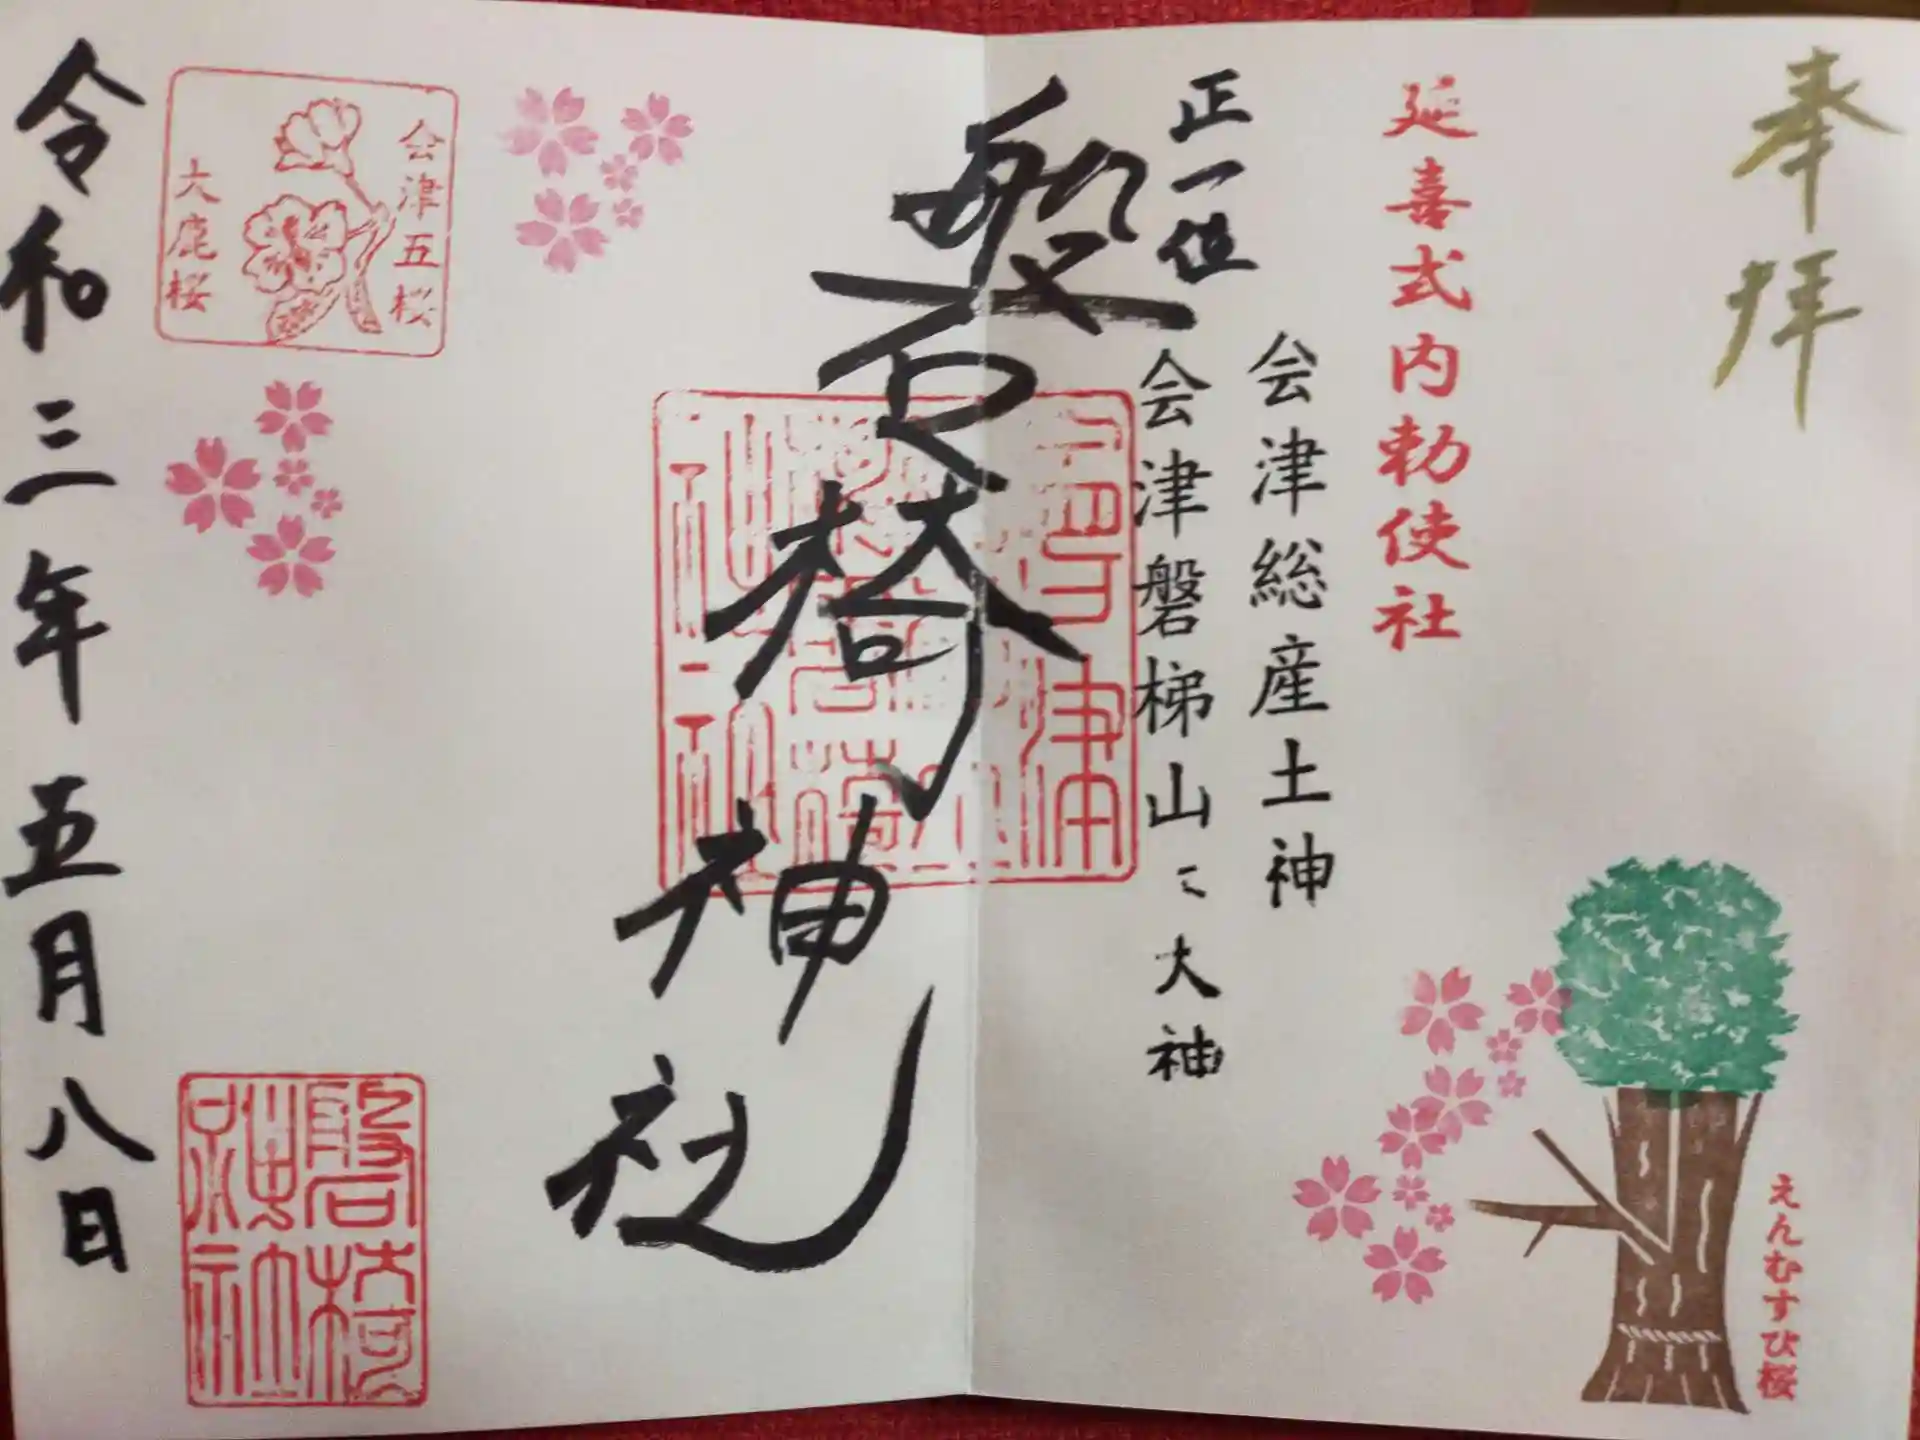 奉拝
延喜式内勅使社
会津総産土神
正一位
会津磐梯山ニ大神
磐椅神社
会津五桜
大鹿桜
令和三年五月八日
磐椅
神社
えんむすび桜